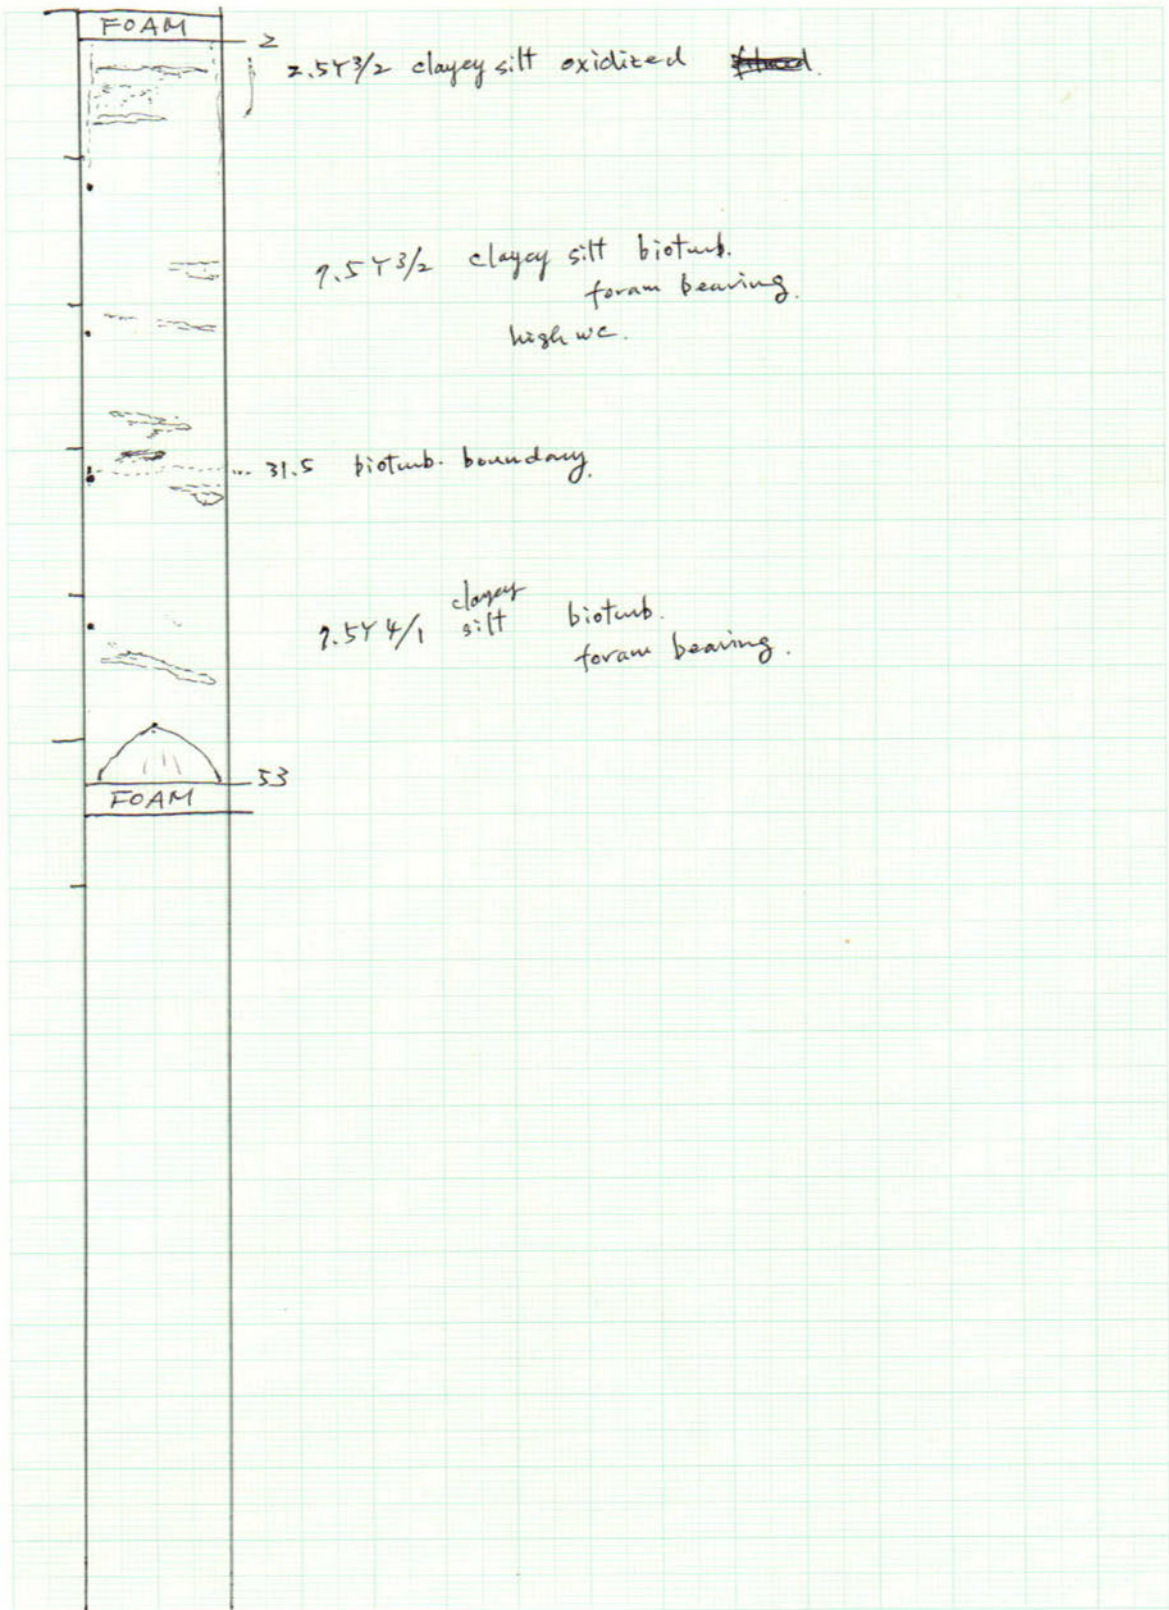 FOAM
2
2.5Y 3/2 clayey silt oxidized
7.5Y 3/2 clayey silt bioturb.
foram bearing.
high wc.
31.5 bioturb. boundary.
7.5Y 4/1 clayey silt bioturb.
foram bearing.
53
FOAM